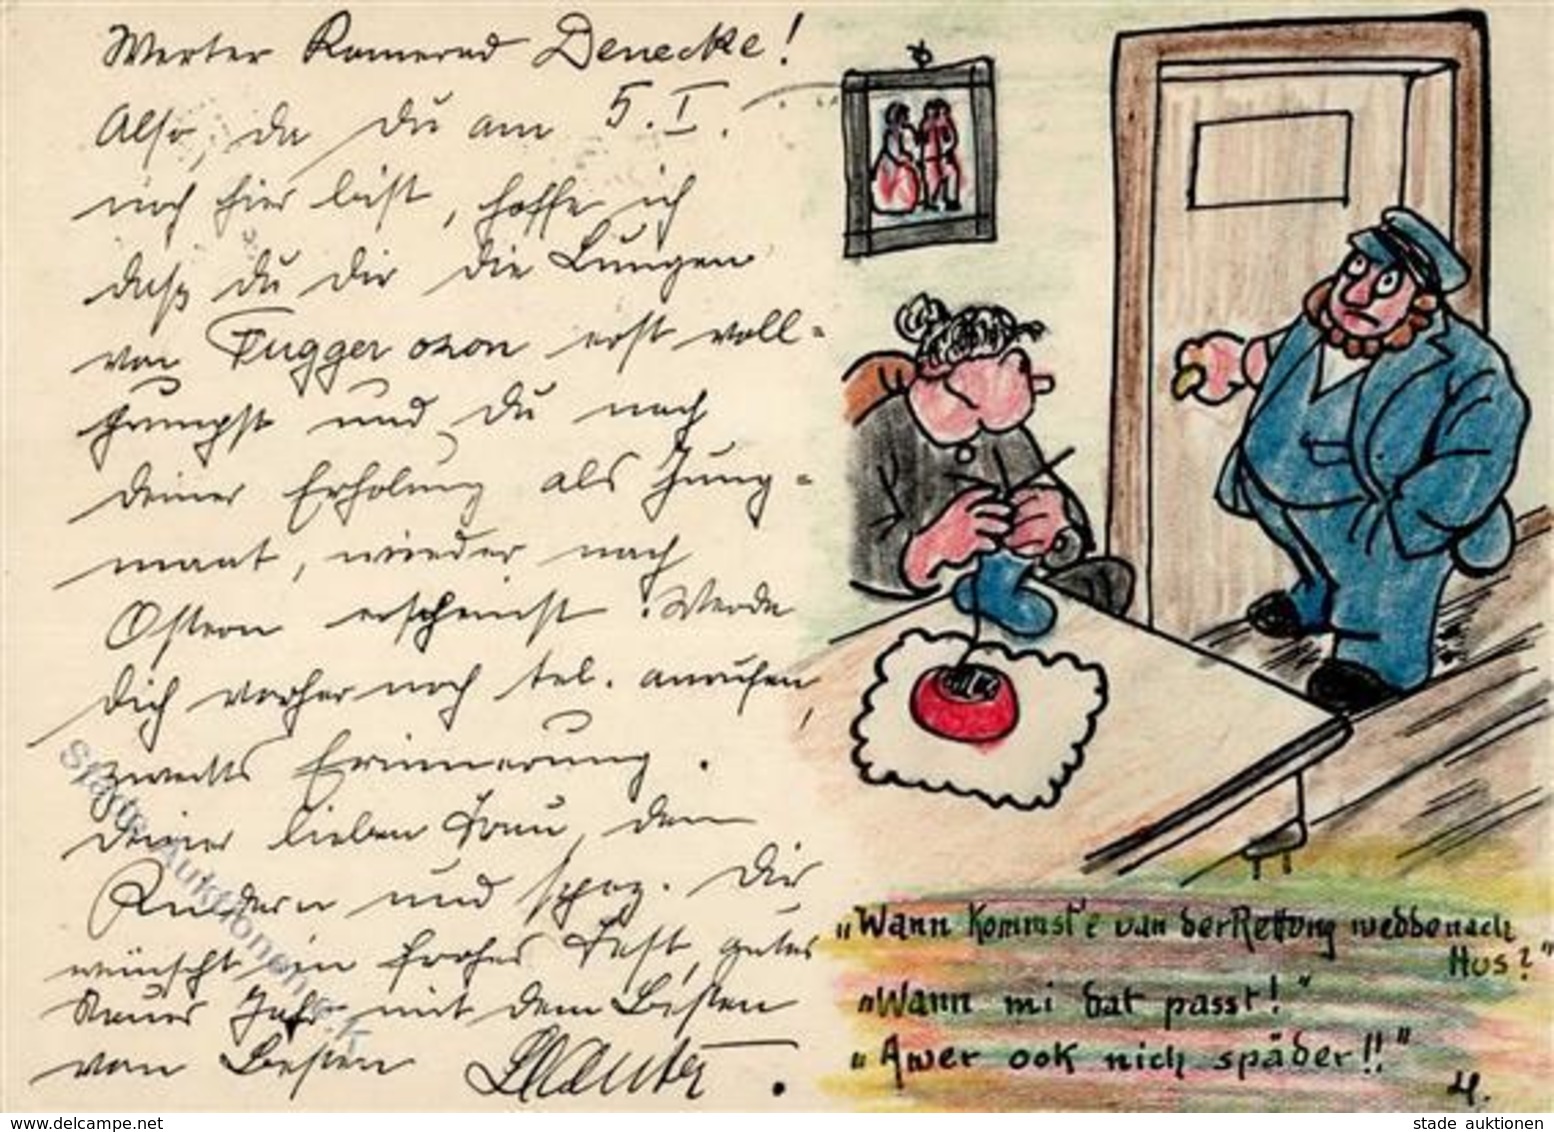 Werter Kamerad Denecke!
Also, da du am 5. I.
noch hier bist, hoffe ich
daß du dir die Lungen
von Fugger ozon erst voll=
pumpst und du nach
deiner Erholung als Jung=
maat, wieder nach
Ostern erscheinst. Werde
dich vorher noch tel. anrufen,
zwecks Erinnerung.
Deiner lieben Frau, dem
Kindern und spez. Dir
wünscht ein frohes Fest, gutes
Neues Jahr mit dem Besten
vom Besten
„Wann Kommst'e van der Rettung wedde nach
Hus?"
„Wann mi dat passt!"
„Awer ook nich späder!!"
H.
Stade Auktionen
www.ansichtskarten-center.de
stade auktionen